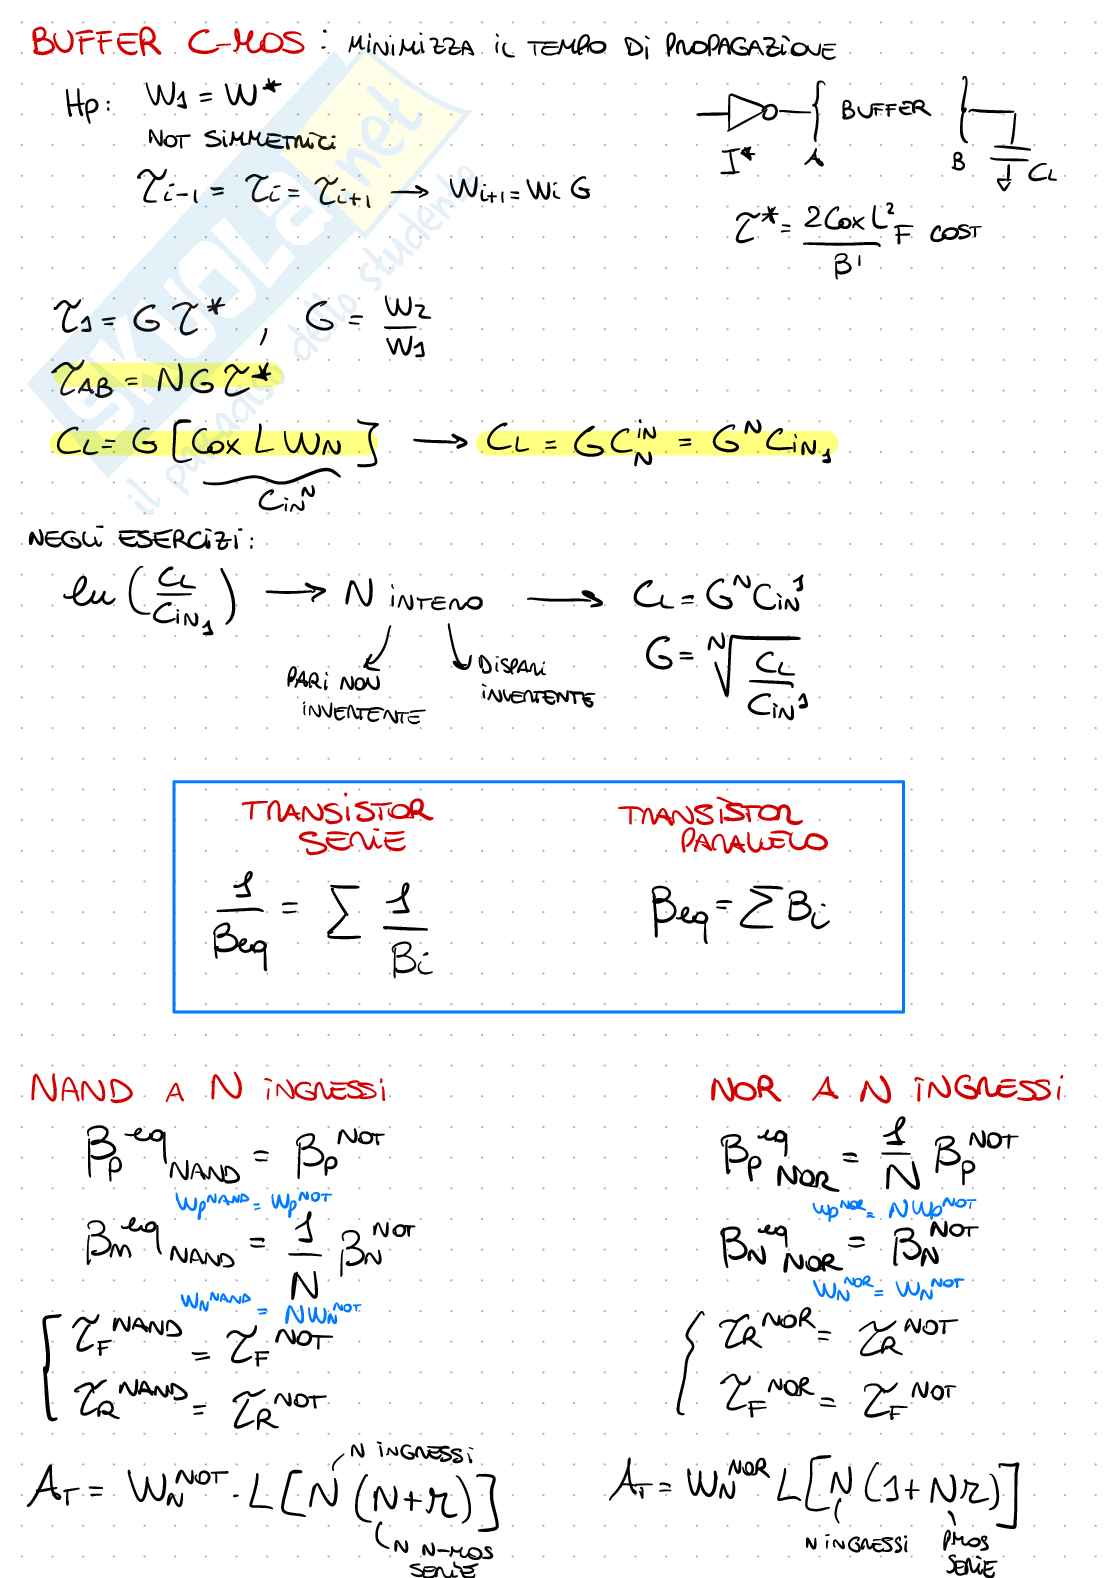 BUFFER C-MOS : MINIMIZZA IL TEMPO DI PROPAGAZIONE
Hp: W1 = W*
NOT SIMMETRICI
τi-1 = τi = τi+1 → Wi+1 = Wi G
I* A BUFFER B CL
τ* = 2Cox L² / β' F COST
τ1 = G τ* , G = W2 / W1
τAB = N G τ*
CL = G [Cox L WN] → CL = G CN^in = G^N Cin1
Cin^N
NEGLI ESERCIZI:
ln (CL / Cin1) → N INTERO → CL = G^N Cin^1
PARI NON INVERTENTE
DISPARI INVERTENTE
G = N√(CL / Cin^1)
TRANSISTOR SERIE
1/βeq = Σ 1/βi
TRANSISTOR PARALLELO
βeq = Σ βi
NAND A N INGRESSI
βp^eq NAND = βp^NOT
Wp^NAND = Wp^NOT
βn^eq NAND = 1/N βN^NOT
WN^NAND = N WN^NOT
τF^NAND = τF^NOT
τR^NAND = τR^NOT
N INGRESSI
AT = WN^NOT · L [N (N+r)]
N N-MOS SERIE
NOR A N INGRESSI
βp^eq NOR = 1/N βp^NOT
Wp^NOR = N Wp^NOT
βN^eq NOR = βN^NOT
WN^NOR = WN^NOT
τR^NOR = τR^NOT
τF^NOR = τF^NOT
AT = WN^NOR L [N (1+Nr)]
N INGRESSI
PMOS SERIE
SKUOLA.net
il paradiso dello studente